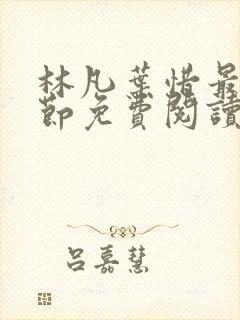 林凡葉惜最
節免費閱讀
呂嘉慧